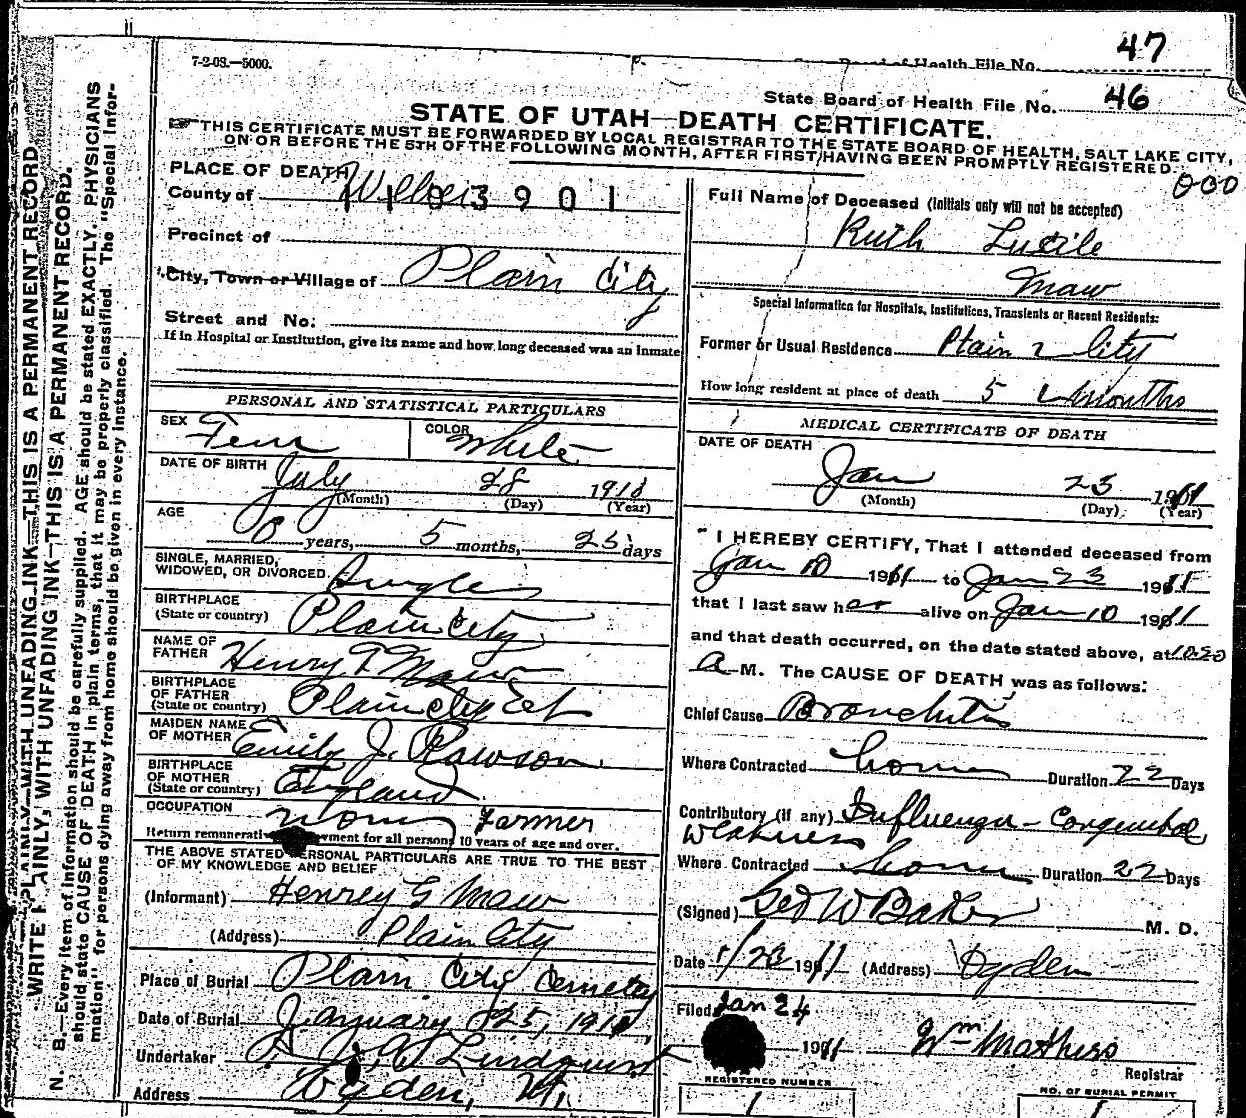 47
7-2-08.—5000.
Board of Health File No.
State Board of Health File No. 46
STATE OF UTAH—DEATH CERTIFICATE.
THIS CERTIFICATE MUST BE FORWARDED BY LOCAL REGISTRAR TO THE STATE BOARD OF HEALTH, SALT LAKE CITY,
ON OR BEFORE THE 5TH OF THE FOLLOWING MONTH, AFTER FIRST HAVING BEEN PROMPTLY REGISTERED.
000
WRITE PLAINLY WITH UNFADING INK—THIS IS A PERMANENT RECORD.
WRITE PLAINLY, WITH UNFADING INK—THIS IS A PERMANENT RECORD.
N. B.—Every item of information should be carefully supplied. AGE should be stated EXACTLY. PHYSICIANS
should state CAUSE OF DEATH in plain terms, that it may be properly classified. The "Special Infor-
mation" for persons dying away from home should be given in every instance.
PLACE OF DEATH
County of Weber
1103901
Precinct of
City, Town or Village of Plain City
Street and No:
If in Hospital or Institution, give its name and how long deceased was an inmate
PERSONAL AND STATISTICAL PARTICULARS
SEX Fem COLOR White
DATE OF BIRTH July 28 1910
(Month) (Day) (Year)
AGE
0 years, 5 months, 25 days
SINGLE, MARRIED,
WIDOWED, OR DIVORCED Single
BIRTHPLACE
(State or country) Plain City
NAME OF
FATHER Henry G Maw
BIRTHPLACE
OF FATHER
(State or country) Plain City Ut
MAIDEN NAME
OF MOTHER Emily J. Rawson
BIRTHPLACE
OF MOTHER
(State or country) England
OCCUPATION
None Farmer
Return remunerative employment for all persons 10 years of age and over.
THE ABOVE STATED PERSONAL PARTICULARS ARE TRUE TO THE BEST
OF MY KNOWLEDGE AND BELIEF
(Informant) Henrey G Maw
(Address) Plain City
Place of Burial Plain City Cemetay
Date of Burial January 25, 191
Undertaker Lindquist
Address Ogden, Ut.
Full Name of Deceased (Initials only will not be accepted)
Ruth Lucile
Maw
Special Information for Hospitals, Institutions, Transients or Recent Residents:
Former or Usual Residence Plain City
How long resident at place of death 5 months
MEDICAL CERTIFICATE OF DEATH
DATE OF DEATH
Jan 23 1911
(Month) (Day) (Year)
I HEREBY CERTIFY, That I attended deceased from
Jan 10 1911 to Jan 23 1911
that I last saw her alive on Jan 10 1911
and that death occurred, on the date stated above, at 10.20
A M. The CAUSE OF DEATH was as follows:
Chief Cause Bronchitis
Where Contracted home Duration 22 Days
Contributory (if any) Influenza - Congenital
Weakness
Where Contracted home Duration 22 Days
(Signed) Geo W Baker M. D.
Date 1/23 1911 (Address) Ogden
Filed Jan 24
1911 Wm Mathers
Registrar
REGISTERED NUMBER
1
NO. OF BURIAL PERMIT
1